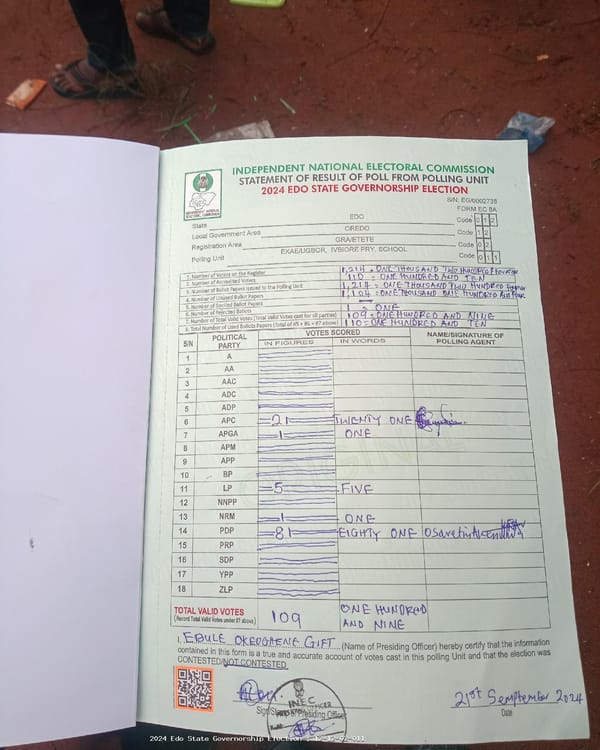 INDEPENDENT NATIONAL ELECTORAL COMMISSION
STATEMENT OF RESULT OF POLL FROM POLLING UNIT
2024 EDO STATE GOVERNORSHIP ELECTION
S/N: EG/0002738
FORM EC 8A
State EDO Code 0 1 2
Local Government Area OREDO Code 1 2
Registration Area GRA/ETETE Code 0 2
Polling Unit EKAE/UGBOR, IVBIORE PRY. SCHOOL Code 0 1 1
1. Number of Voters on the Register 1,214 = ONE THOUSAND TWO HUNDRED
2. Number of Accredited Voters 110 = ONE HUNDRED AND TEN
3. Number of Ballot Papers Issued to the Polling Unit 1,214 = ONE THOUSAND TWO HUNDRED
4. Number of Unused Ballot Papers 1,104 = ONE THOUSAND ONE HUNDRED AND FOUR
5. Number of Spoiled Ballot Papers
6. Number of Rejected Ballots 1 = ONE
7. Number of Total Valid Votes (Total Valid Votes cast for all parties) 109 = ONE HUNDRED AND NINE
8. Total Number of Used Ballots Papers (Total of #5 + #6 + #7 above) 110 = ONE HUNDRED AND TEN
S/N POLITICAL PARTY VOTES SCORED NAME/SIGNATURE OF POLLING AGENT
IN FIGURES IN WORDS
1 A
2 AA
3 AAC
4 ADC
5 ADP
6 APC 21 TWENTY ONE
7 APGA 1 ONE
8 APM
9 APP
10 BP
11 LP 5 FIVE
12 NNPP
13 NRM 1 ONE
14 PDP 81 EIGHTY ONE
15 PRP
16 SDP
17 YPP
18 ZLP
TOTAL VALID VOTES 109 ONE HUNDRED AND NINE
(Record Total Valid Votes under #7 above)
I, EBULE OKEOGHENE GIFT (Name of Presiding Officer) hereby certify that the information
contained in this form is a true and accurate account of votes cast in this polling Unit and that the election was
CONTESTED/NOT CONTESTED.
INEC
Presiding Officer
21st Semptember 2024
Date
2024 Edo State Governorship Election